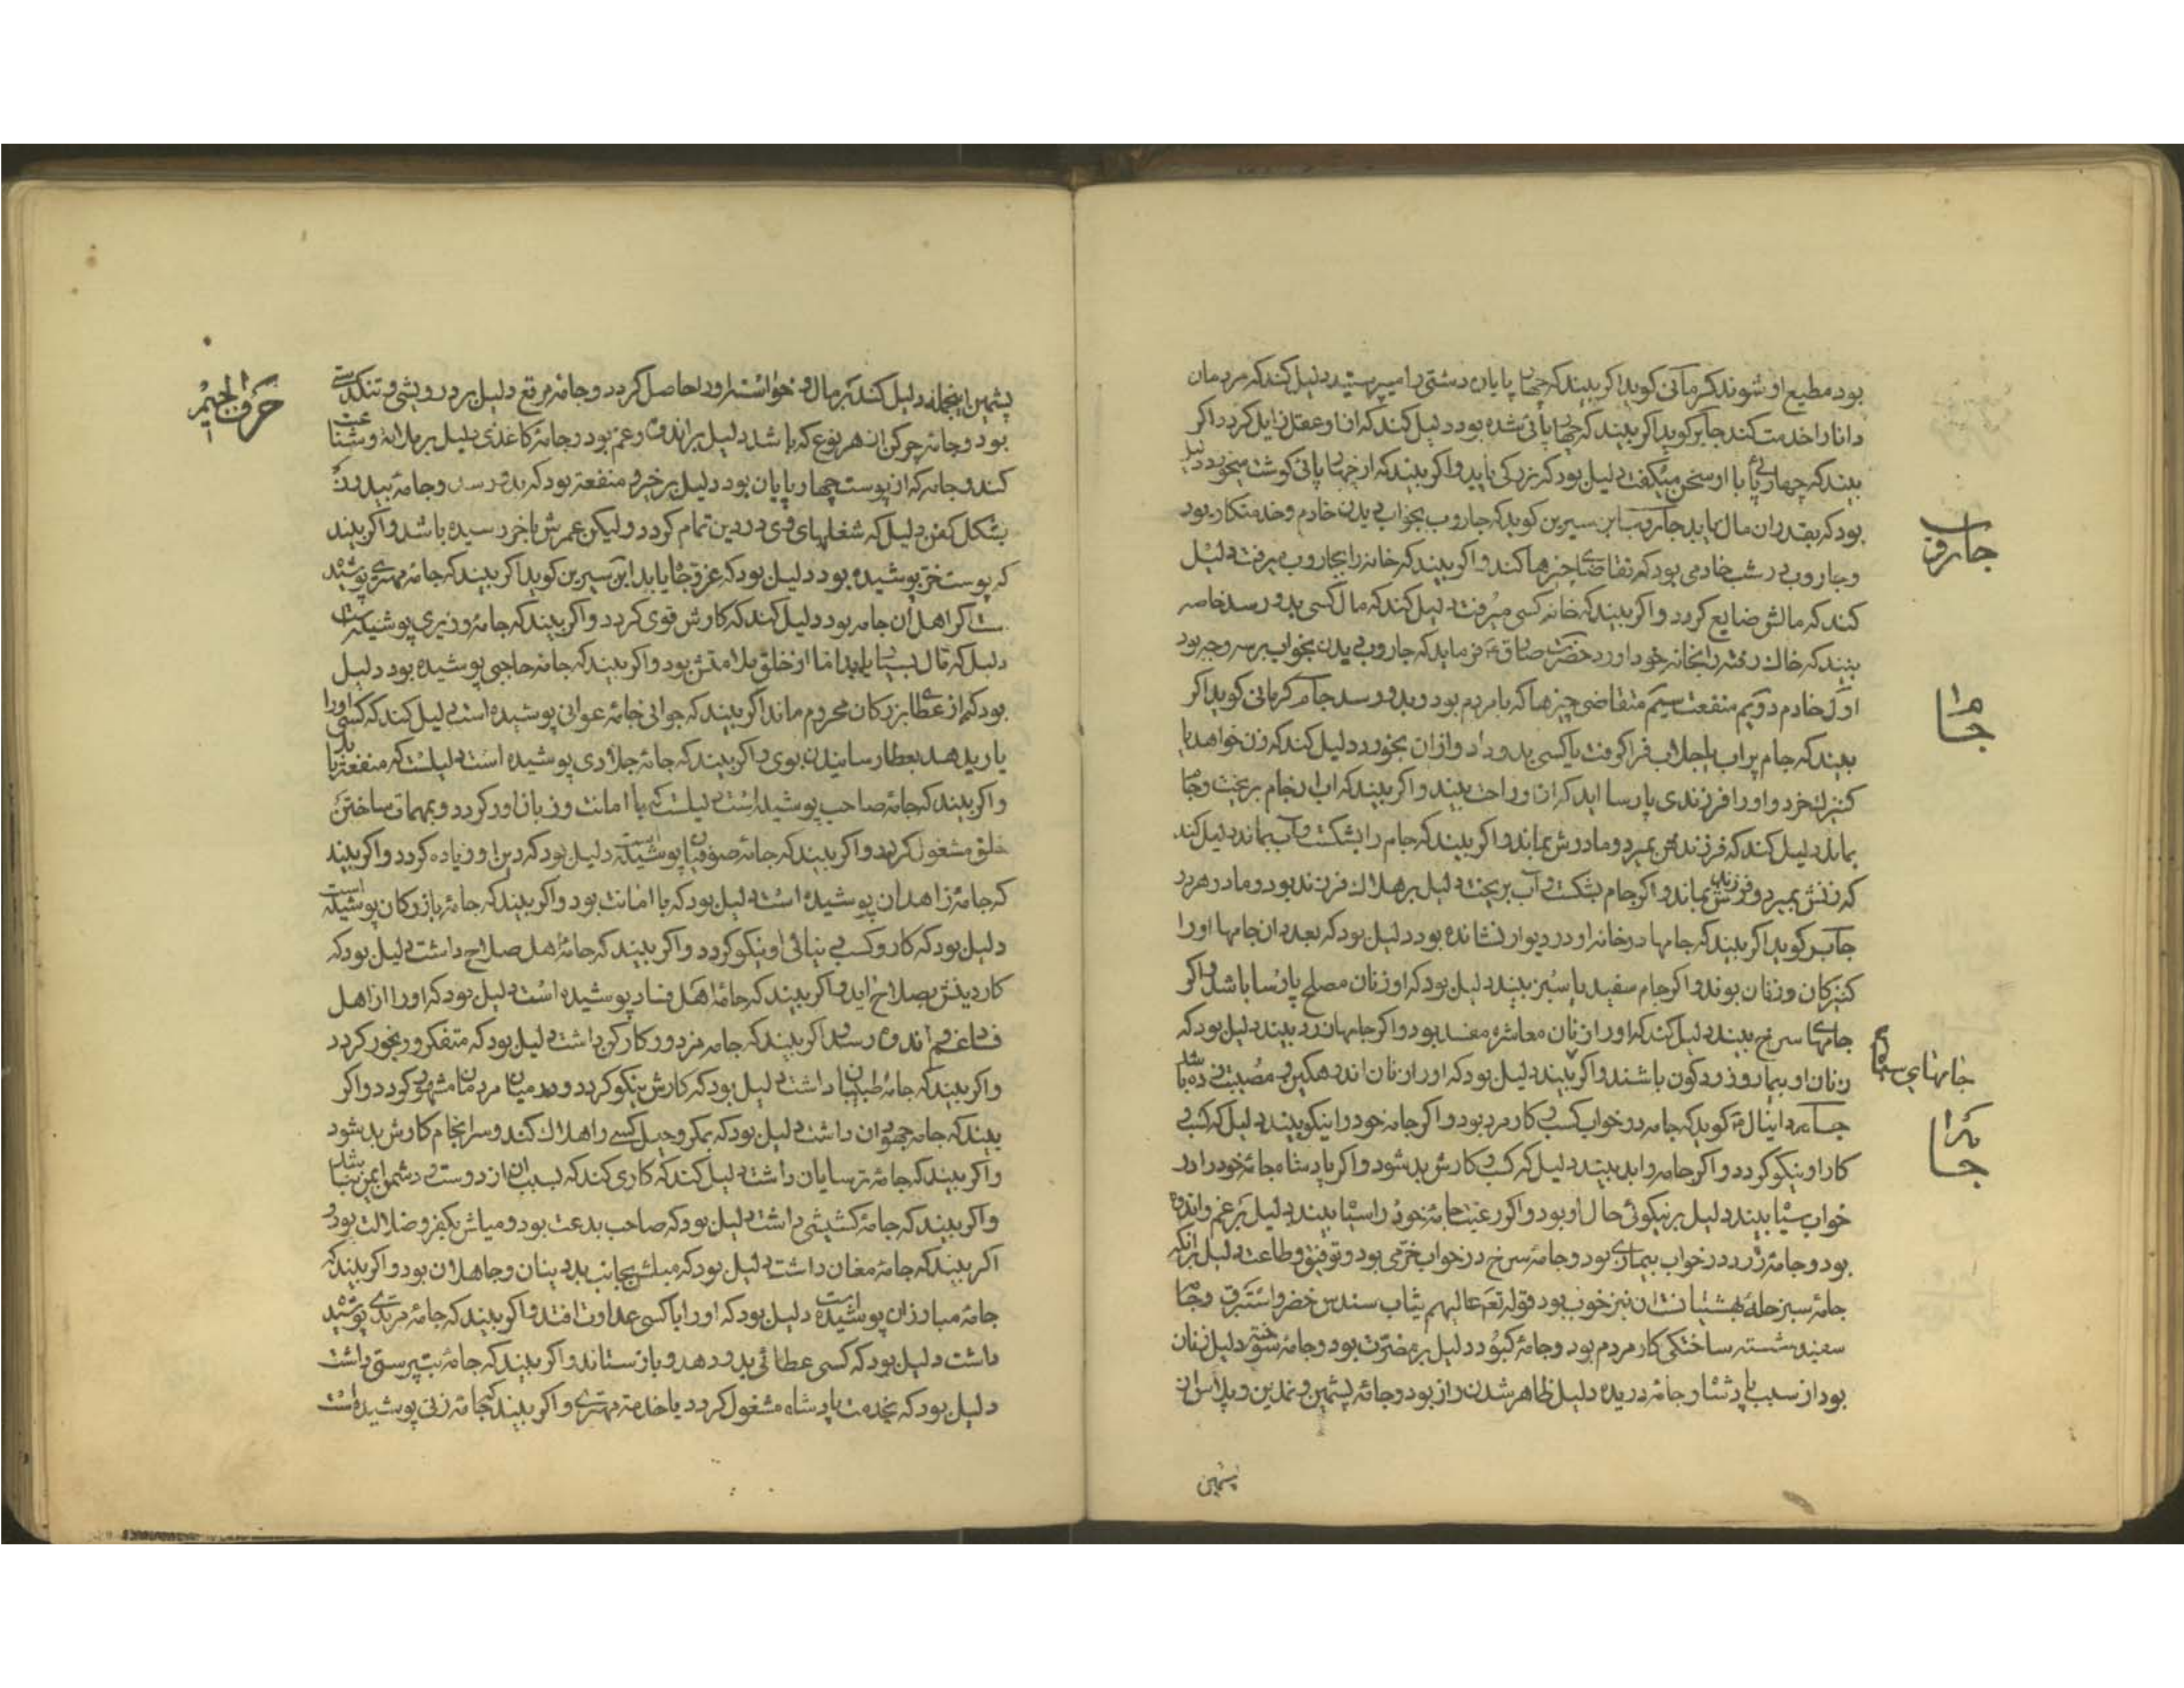 بود مطیع او شوند کرمانی کوید اکر بیند که چهار پایان دشتی را میپرستید دلیل کند که مردمان
دانا را خدمت کند جابر کوید اکر بیند که چهار پائی شده بود دلیل کند که از او عقل زایل کردد اکر
بیند که چهار پائی با او سخن میکفت دلیل بود که بزرکی یابد و اکر بیند که از چهار پائی کوشت میخورد دلیل
بود که بقدر ان مال یابد جاروب ابن سیرین کوید که جاروب بخواب دیدن خادم و خدمتکار بود
و جاروب خادمی بود که تقاضای چیزها کند و اکر بیند که خانه را بجاروب میرفت دلیل
کند که مالش ضایع کردد و اکر بیند که خانه کسی میرفت دلیل کند که مال کسی بدو رسد خاصه
بیند که خاک رفته را بخانه خود اورد حضرت صادق ع فرماید که جاروب دیدن بخواب بر سه وجه بود
اول خادم دویم منفعت سیم متقاضی چیزها که بامردم بود و بدو رسد جام کرمانی کوید اکر
بیند که جام پر اب یا جلاب فرا کرفت یا کسی بدو داد و ازان بخورد دلیل کند که زن خواهد یا
کنیزک خرد و او را فرزندی پارسا اید که از او راحت بیند و اکر بیند که اب از جام بریخت و جام
بماند دلیل کند که فرزندش بمیرد و مادرش بماند و اکر بیند که جام را بشکست و آب بماند دلیل کند
که زنش بمیرد و فرزندش بماند و اکر جام بشکست و آب بریخت دلیل بر هلاک فرزند بود و مادر هر دو
جابر کوید اکر بیند که جامها در خانه او در دیوار نشانده بود دلیل بود که بعدد ان جامها او را
کنیزکان و زنان بوند و اکر جام سفید یا سبز بیند دلیل بود که او زنان مصلح پارسا باشد و اکر
جامهای سرخ بیند دلیل کند که او را زنان معاشره مفسد بود و اکر جامها زرد بیند دلیل بود که
زنان او بیمار و زرد کون باشند و اکر بیند دلیل بود که او را زنان اندهکین و مصیبت زده باشد
جامه دانیال ع کوید که جامه در خواب کسب و کار مرد بود و اکر جامه خود را نیکو بیند دلیل که کسب و
کار او نیکو کردد و اکر جامه را بد بیند دلیل که کسب و کارش بد شود و اکر پادشاه جامهٔ خود را در
خواب سیاه بیند دلیل بر نیکوئی حال او بود و اکر رعیت جامهٔ خود را سیاه بیند دلیل بر غم و اندوه
بود و جامهٔ زرد در خواب بیماری بود و جامهٔ سرخ در خواب خرمی بود و توفیق و طاعت دلیل برانکه
جامهٔ سبز حلهٔ بهشتیانست ان نیز خوب بود قوله تعم عالیهم ثیاب سندس خضر و استبرق و جامه
سفید شسته ساختکی کار مردم بود و جامهٔ کبود دلیل بر مضرت بود و جامهٔ سوخته دلیل زیان
بود از سبب پادشاه و جامهٔ دریده دلیل ظاهر شدن راز بود و جامهٔ پشمین و نمدین و پلاس از
پشمین
جاروب
جام
جامهای سیاه
جامه
حرف الجیم
پشمین اینجمله دلیل کند بر مال و خواسته او را حاصل کردد و جامهٔ مرقع دلیل بر درویشی و تنکدستی
بود و جامهٔ چرکن از هر نوع که باشد دلیل بر اندوه و غم بود و جامهٔ کاغذی دلیل بر ملامت و شناعت
کند و جامه که از پوست چهار پایان بود دلیل بر خیر و منفعت بود که بدو رسد و جامهٔ
بشکل کفن دلیل که شغلهای وی در دین تمام کردد ولیکن عمرش باخر رسیده باشد و اکر بیند
که پوست خز پوشیده بود دلیل بود که عز و جاه یابد ابن سیرین کوید اکر بیند که جامهٔ مهتری پوشیده
است اکر اهل ان جامه بود دلیل کند که کارش قوی کردد و اکر بیند که جامهٔ وزیری پوشیده است
دلیل که مال بسیار یابد اما از خلق بلامتش بود و اکر بیند که جامه حاجبی پوشیده بود دلیل
بود که از عطای بزرکان محروم ماند اکر بیند که جوانی جامهٔ عوانی پوشیده است دلیل کند که کسی او را
یاری دهد بعطا رسانیدن بوی و اکر بیند که جامهٔ جلادی پوشیده است دلیلست که منفعت یابد
و اکر بیند که جامهٔ صاحب پوشیده است دلیلست که با امانت و زبان اور کردد و بمهمات ساختن
خلق مشغول کردد و اکر بیند که جامهٔ صوفیان پوشیده است دلیل بود که دین او زیاده کردد و اکر بیند
که جامهٔ زاهدان پوشیده است دلیل بود که با امانت بود و اکر بیند که جامهٔ بازرکان پوشیده است
دلیل بود که کار و کسب دنیائی او نیکو کردد و اکر بیند که جامهٔ اهل صلاح داشت دلیل بود که
کار دینش بصلاح اید و اکر بیند که جامهٔ اهل فساد پوشیده است دلیل بود که او را از اهل
فساد غم و اندوه رسد و اکر بیند که جامه مزدور کارکن داشت دلیل بود که متفکر و رنجور کردد
و اکر بیند که جامهٔ طبیبان داشت دلیل بود که کارش نیکو کردد و در میان مردمان مشهور کردد و اکر
بیند که جامه جهودان داشت دلیل بود که بمکر و حیل کسی را هلاک کند و سرانجام کارش بد شود
و اکر بیند که جامهٔ ترسایان داشت دلیل کند که کاری کند که بسبب ان از دوست و دشمن ایمن نباشد
و اکر بیند که جامهٔ کشیشی داشت دلیل بود که صاحب بدعت بود و میلش بکفر و ضلالت بود و
اکر بیند که جامهٔ مغان داشت دلیل بود که میلش بجانب بددینان و جاهلان بود و اکر بیند که
جامهٔ مبارزان پوشیده است دلیل بود که او را با کسی عداوت افتد و اکر بیند که جامهٔ مرتدی پوشیده
داشت دلیل بود که کسی عطائی بدو دهد و باز ستاند و اکر بیند که جامهٔ بت پرستی داشت
دلیل بود که بخدمت پادشاه مشغول کردد یا خدمت مهتری و اکر بیند که جامهٔ زنی پوشیده است